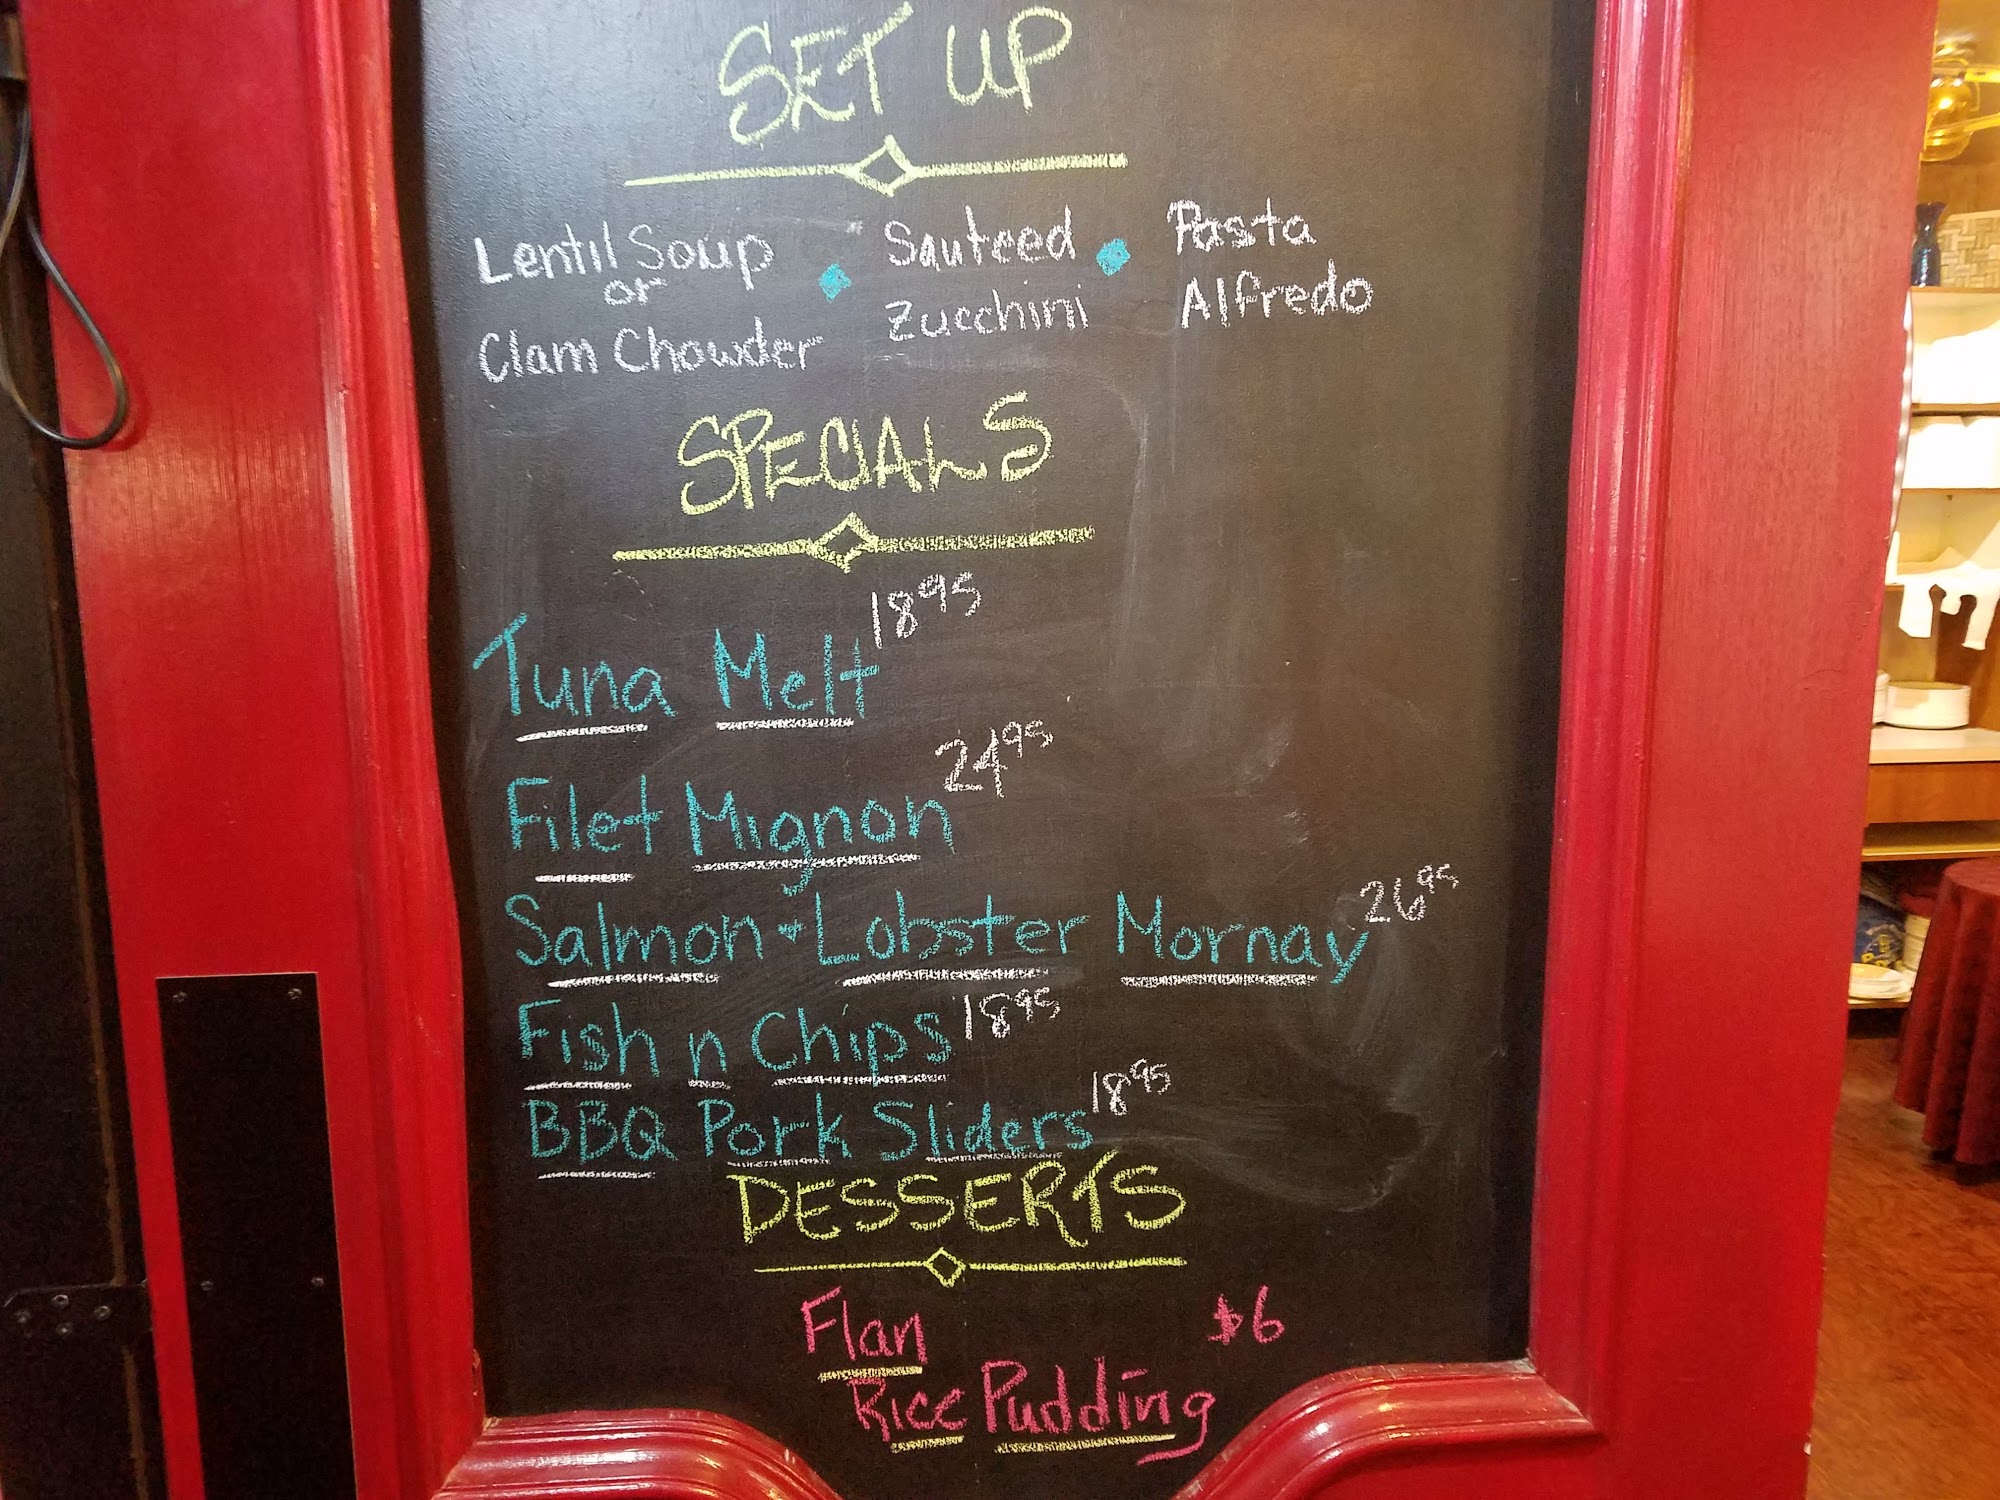 SET UP
Lentil Soup
or
Clam Chowder
Sauteed
Zucchini
Pasta
Alfredo
SPECIALS
Tuna Melt 18 95
Filet Mignon 24 95
Salmon + Lobster Mornay 26 95
Fish n Chips 18 95
BBQ Pork Sliders 18 95
DESSERTS
Flan $6
Rice Pudding